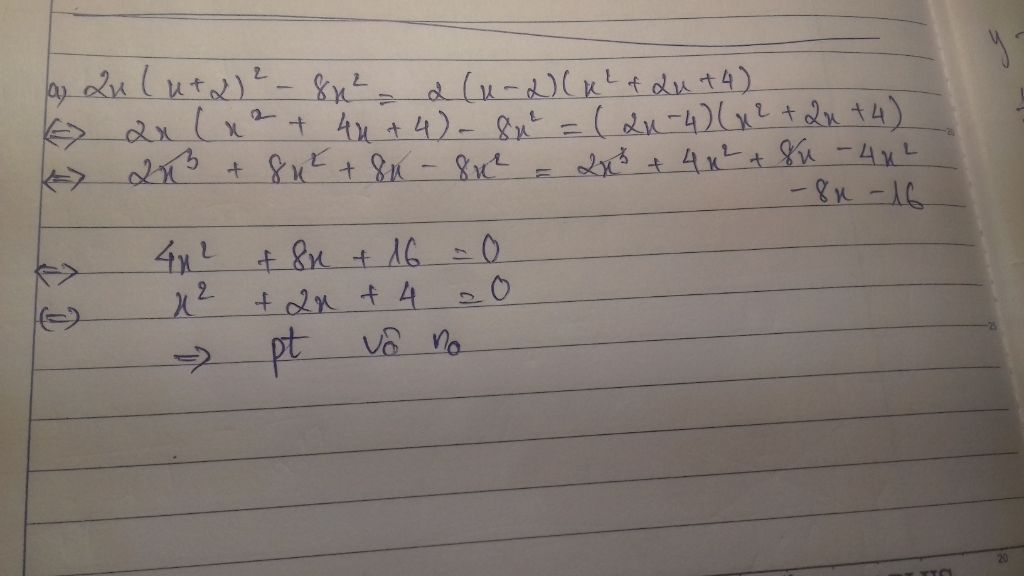 a) 2x(x+2)² - 8x² = 2(x-2)(x²+2x+4)
⇔ 2x(x² + 4x+4) - 8x² = (2x-4)(x²+2x+4)
⇔ 2x³ + 8x² + 8x - 8x² = 2x³ + 4x² + 8x - 4x²
-8x -16
⇔ 4x² + 8x + 16 = 0
⇔ x² + 2x + 4 = 0
⇒ pt vô no
y
20